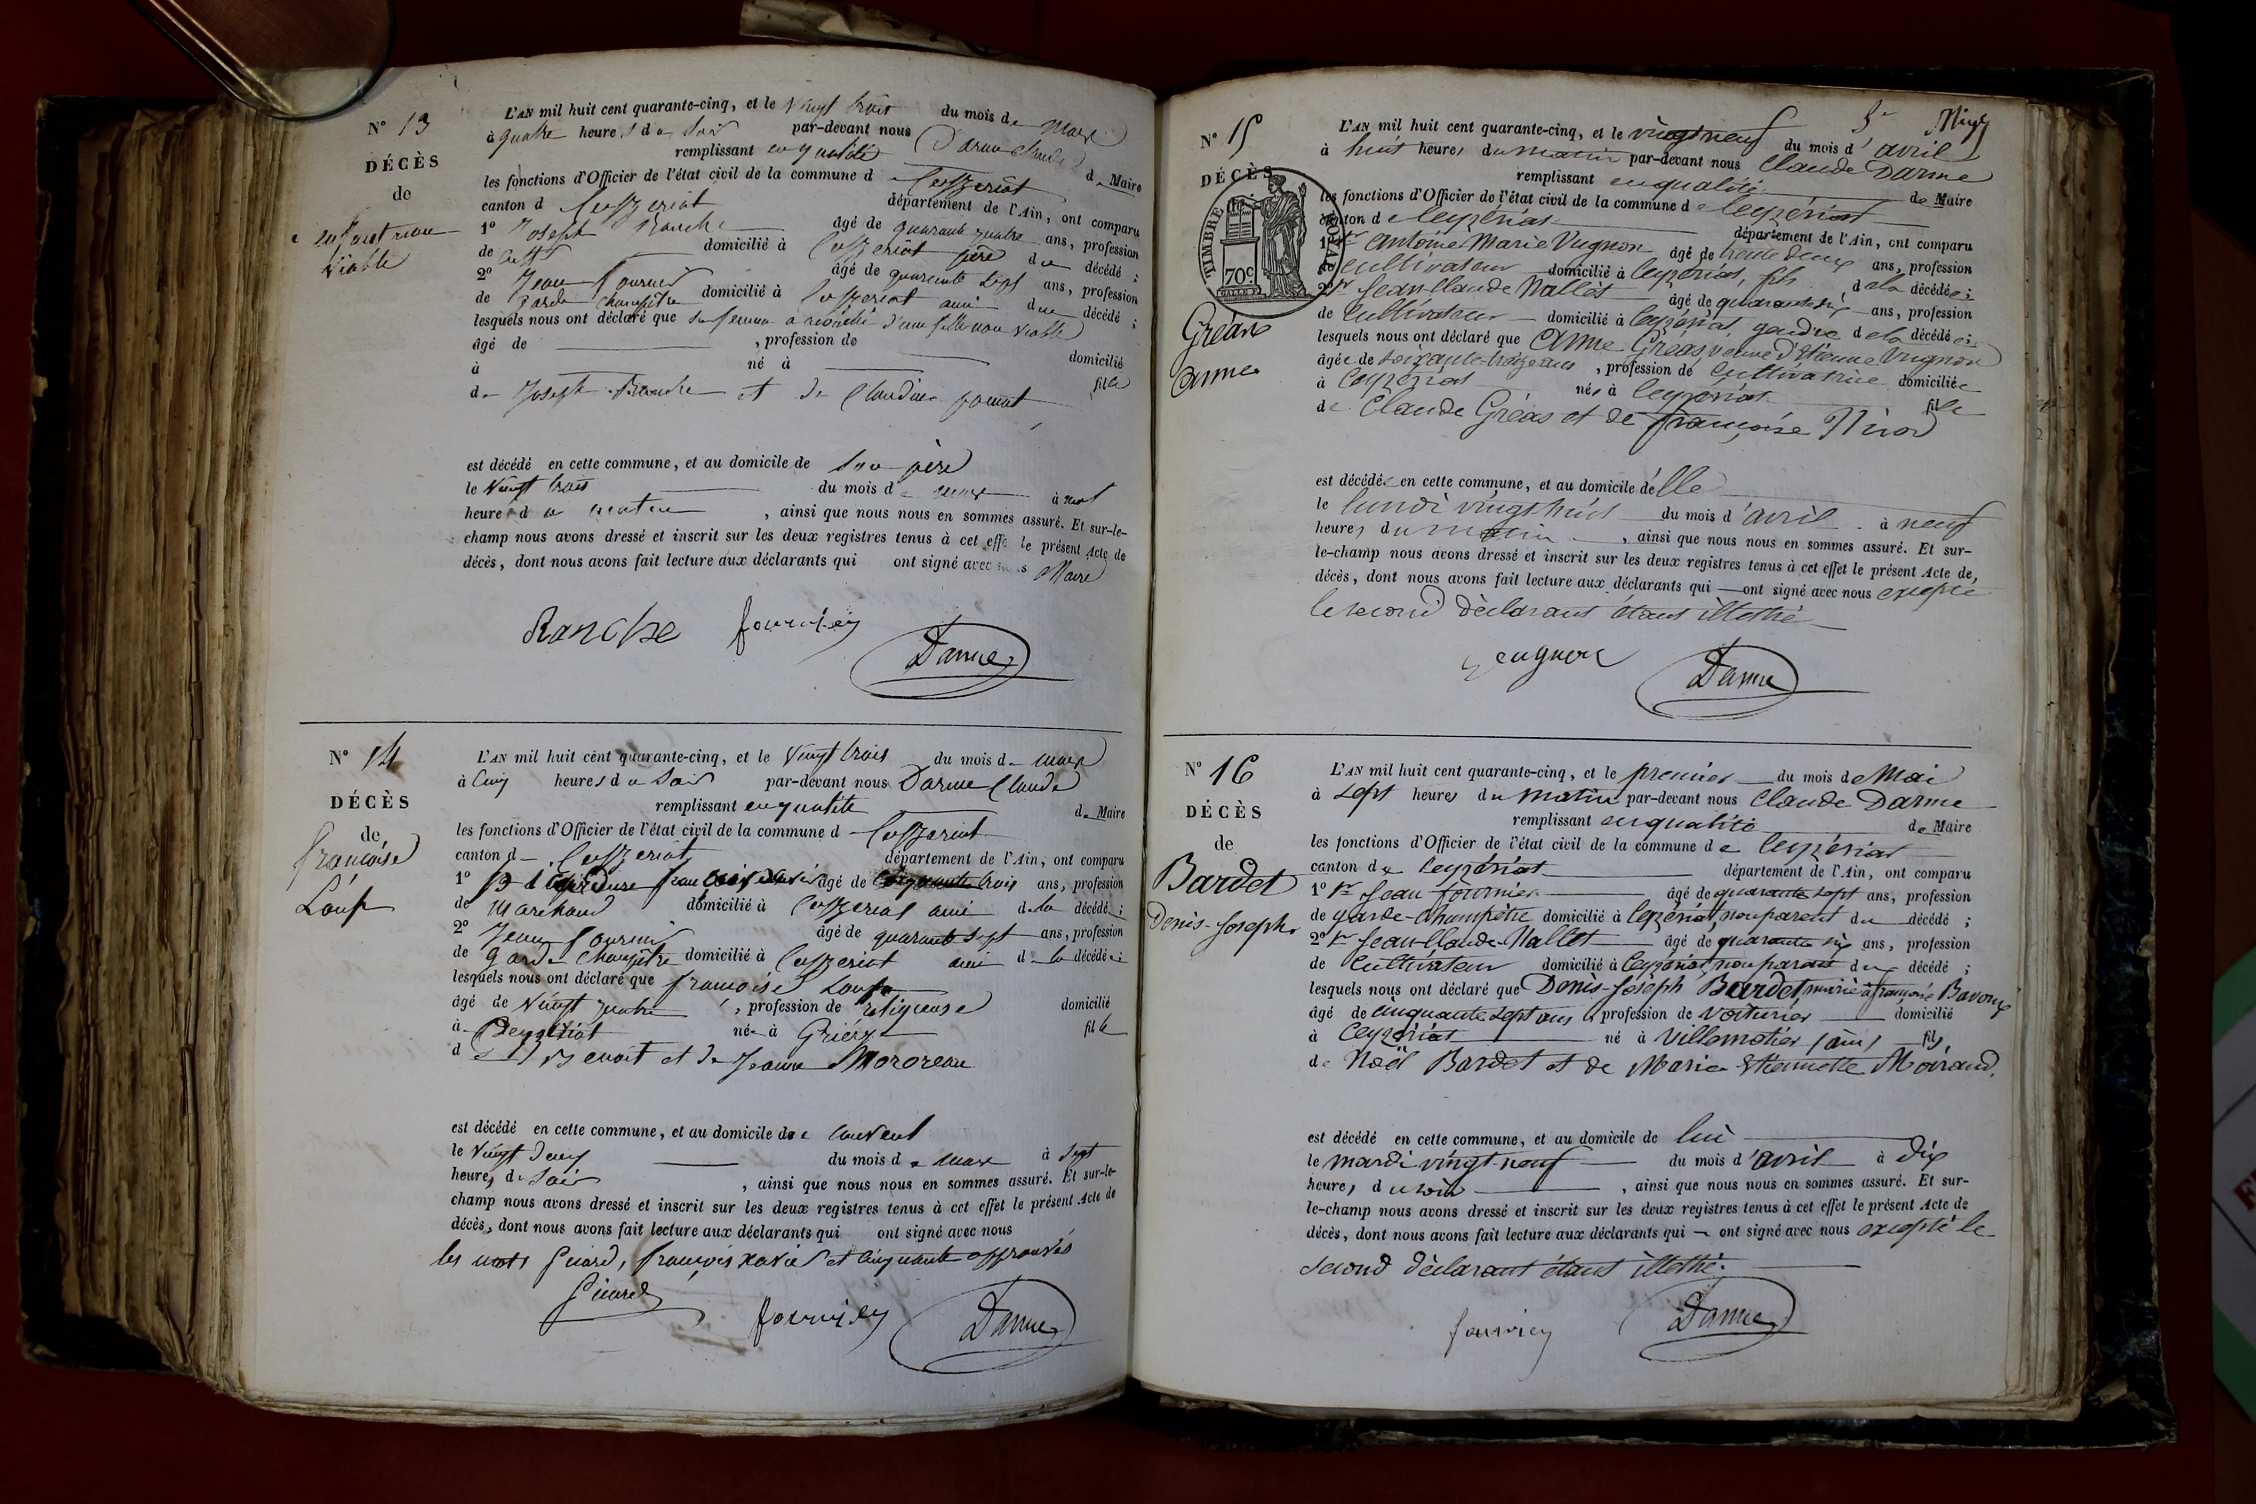 N° 13
DÉCÈS
de
enfant non
viable
L'AN mil huit cent quarante-cinq, et le vingt trois du mois de mars
à quatre heures du soir par-devant nous Darme Claude
remplissant en qualité de Maire
les fonctions d'Officier de l'état civil de la commune d Ceyzeriat
canton d Ceyzeriat département de l'Ain, ont comparu
1° Joseph Ranche âgé de quarante quatre ans, profession
de domicilié à Ceyzeriat père du décédé ;
2° Jean Fournier âgé de quarante sept ans, profession
de Garde Champêtre domicilié à Ceyzeriat ami du décédé ;
lesquels nous ont déclaré que sa femme a accouché d'une fille non viable
âgé de , profession de
à né à domicilié
fille
de Joseph Ranche et de Claudine
est décédé en cette commune, et au domicile de son père
le vingt trois du mois de mars à
heure du matin , ainsi que nous nous en sommes assuré. Et sur-le-
champ nous avons dressé et inscrit sur les deux registres tenus à cet effet le présent Acte de
décès, dont nous avons fait lecture aux déclarants qui ont signé avec nous Maire
Ranche fournier Darme
N° 14
DÉCÈS
de
françoise
Loup
L'AN mil huit cent quarante-cinq, et le vingt trois du mois de mars
à cinq heures du soir par-devant nous Darme Claude
remplissant en qualité de Maire
les fonctions d'Officier de l'état civil de la commune d Ceyzeriat
canton d Ceyzeriat département de l'Ain, ont comparu
1° âgé de cinquante trois ans, profession
de Marchand domicilié à Ceyzeriat ami de la décédé ;
2° Jean Fournier âgé de quarante sept ans, profession
de garde Champêtre domicilié à Ceyzeriat ami de la décédée ;
lesquels nous ont déclaré que françoise Loup
âgé de vingt quatre , profession de religieuse domicilié
à Ceyzeriat née à fille
de Benoit et de Jeanne
est décédé en cette commune, et au domicile de couvent
le vingt deux du mois de mars à sept
heures du soir , ainsi que nous nous en sommes assuré. Et sur-le-
champ nous avons dressé et inscrit sur les deux registres tenus à cet effet le présent Acte de
décès, dont nous avons fait lecture aux déclarants qui ont signé avec nous
les mots françois xavier et cinquante approuvés
fournier Darme
N° 15
DÉCÈS
TIMBRE ROYAL
70c
Gréas
anne
L'AN mil huit cent quarante-cinq, et le vingt neuf du mois d'avril
à huit heures du matin par-devant nous Claude Darme
remplissant en qualité de Maire
les fonctions d'Officier de l'état civil de la commune de Ceyzériat
canton de Ceyzériat département de l'Ain, ont comparu
1° Sr antoine Marie Vugnon âgé de trente deux ans, profession
de cultivateur domicilié à Ceyzériat, fils de la décédée ;
2° Sr Jean Claude Nallet âgé de quarante six ans, profession
de cultivateur domicilié à Ceyzériat, gendre de la décédée ;
lesquels nous ont déclaré que anne Gréas, veuve d'Etienne Vugnon
âgée de soixante-treize ans , profession de cultivatrice domiciliée
à Ceyzériat née à Ceyzériat fille
de Claude Gréas et de françoise
est décédée en cette commune, et au domicile d'elle
le lundi vingt huit du mois d'avril à neuf
heures du matin , ainsi que nous nous en sommes assuré. Et sur-
le-champ nous avons dressé et inscrit sur les deux registres tenus à cet effet le présent Acte de,
décès, dont nous avons fait lecture aux déclarants qui ont signé avec nous excepté
le second déclarant étant illettré
Darme
N° 16
DÉCÈS
de
Bardet
Denis-Joseph
L'AN mil huit cent quarante-cinq, et le premier du mois de Mai
à sept heures du matin par-devant nous Claude Darme
remplissant en qualité de Maire
les fonctions d'Officier de l'état civil de la commune de Ceyzériat
canton de Ceyzériat département de l'Ain, ont comparu
1° Sr Jean fournier âgé de quarante sept ans, profession
de garde-champêtre domicilié à Ceyzériat, non parent du décédé ;
2° Sr Jean Claude Nallet âgé de quarante six ans, profession
de cultivateur domicilié à Ceyzériat, non parent du décédé ;
lesquels nous ont déclaré que Denis-Joseph Bardet, marié à françoise
âgé de cinquante sept ans , profession de voiturier domicilié
à Ceyzériat né à Villemotier (ain) fils
de Noël Bardet et de Marie Etiennette Moiraud.
est décédé en cette commune, et au domicile de lui
le mardi vingt neuf du mois d'avril à dix
heures du soir , ainsi que nous nous en sommes assuré. Et sur-
le-champ nous avons dressé et inscrit sur les deux registres tenus à cet effet le présent Acte de
décès, dont nous avons fait lecture aux déclarants qui ont signé avec nous excepté le
second déclarant étant illettré.
fournier Darme